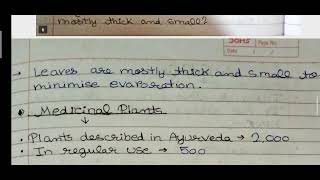 mostly thick and small?
Page No.
Date
→ Leaves are mostly thick and small to
minimise evaporation.
Medicinal Plants
↓
• Plants described in Ayurveda → 2,000
• In regular use → 500